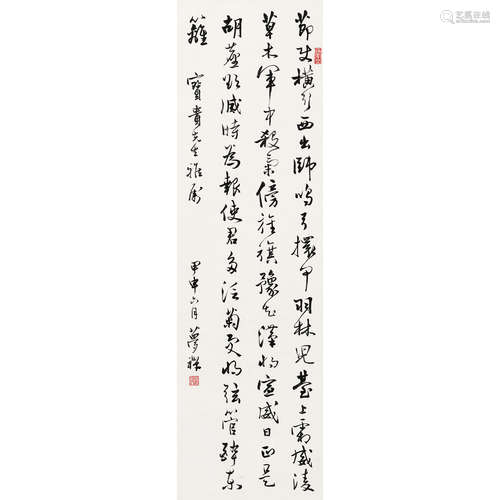 節使橫行西出師鳴弓擐甲羽林兒臺上霜威凌
草木軍中殺氣傍旌旗豫知漢將宣威日正是
胡塵欲滅時為報使君多泛菊更將弦管醉東
籬 寶貴先生雅屬
甲申六月 夢